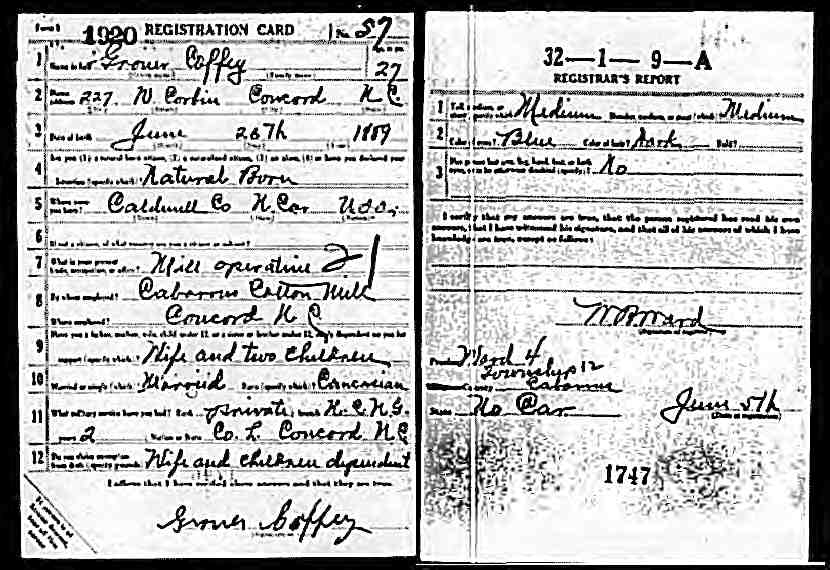 Form 1 1920 REGISTRATION CARD No. 57
1 Name in full Grover Coffey Age, in yrs. 27
(Given name) (Family name)
2 Home address 227 W. Corbin Concord N C
3 Date of birth June 26th 1889
Are you (1) a natural born citizen, (2) a naturalized citizen, (3) an alien, (4) or have you declared your
4 intention (specify which)? Natural Born
5 Where were you born? Caldwell Co N. Car U S S;
6 If not a citizen, of what country are you a citizen or subject?
7 What is your present trade, occupation, or office? Mill operative 21
8 By whom employed? Cabarrus Cotton Mill
Where employed? Concord N C
Have you a father, mother, wife, child under 12, or a sister or brother under 12, solely dependent on you for
9 support (specify which)? Wife and two children
10 Married or single (which)? Married Race (specify which)? Caucasian
11 What military service have you had? Rank private branch N. C. N G.
years 2 Nation or State Co. L. Concord N C
12 Do you claim exemption from draft (specify grounds)? Wife and children dependent
I affirm that I have verified above answers and that they are true.
Grover Coffey
32—1—9—A
REGISTRAR'S REPORT
1 Tall, medium, or short (specify which)? Medium Slender, medium, or stout (which)? Medium
2 Color of eyes? Blue Color of hair? Dark Bald?
3 Has person lost arm, leg, hand, foot, or both eyes, or is he otherwise disabled (specify)? No
I certify that my answers are true, that the person registered has read his own
answers, that I have witnessed his signature, and that all of his answers of which I have
knowledge are true, except as follows:
W B Ward
(Signature of registrar)
Precinct Ward 4
Township 12
County Cabarrus
State No Car June 5th
(Date of registration)
1747